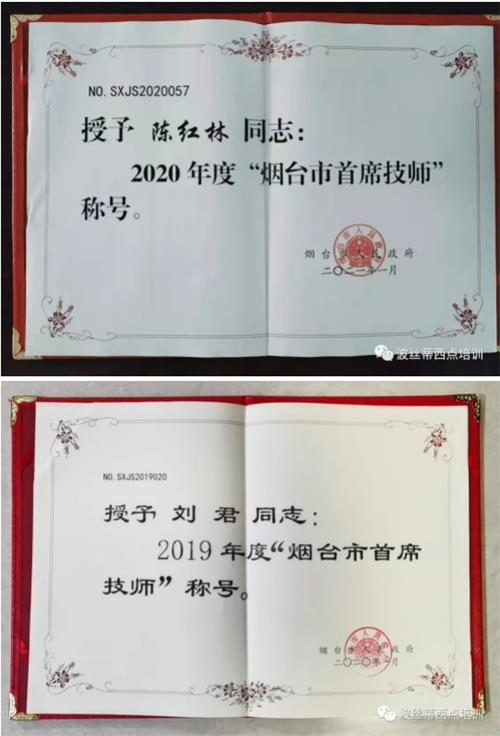 NO. SXJS2020057
授予 陈红林 同志：
2020 年度“烟台市首席技师”
称号。
烟台市人民政府
二〇二一年一月
波丝蒂西点培训
NO. SXJS2019020
授予 刘 君 同志：
2019 年度“烟台市首席
技师”称号。
烟台市人民政府
二〇二〇年 月
波丝蒂西点培训